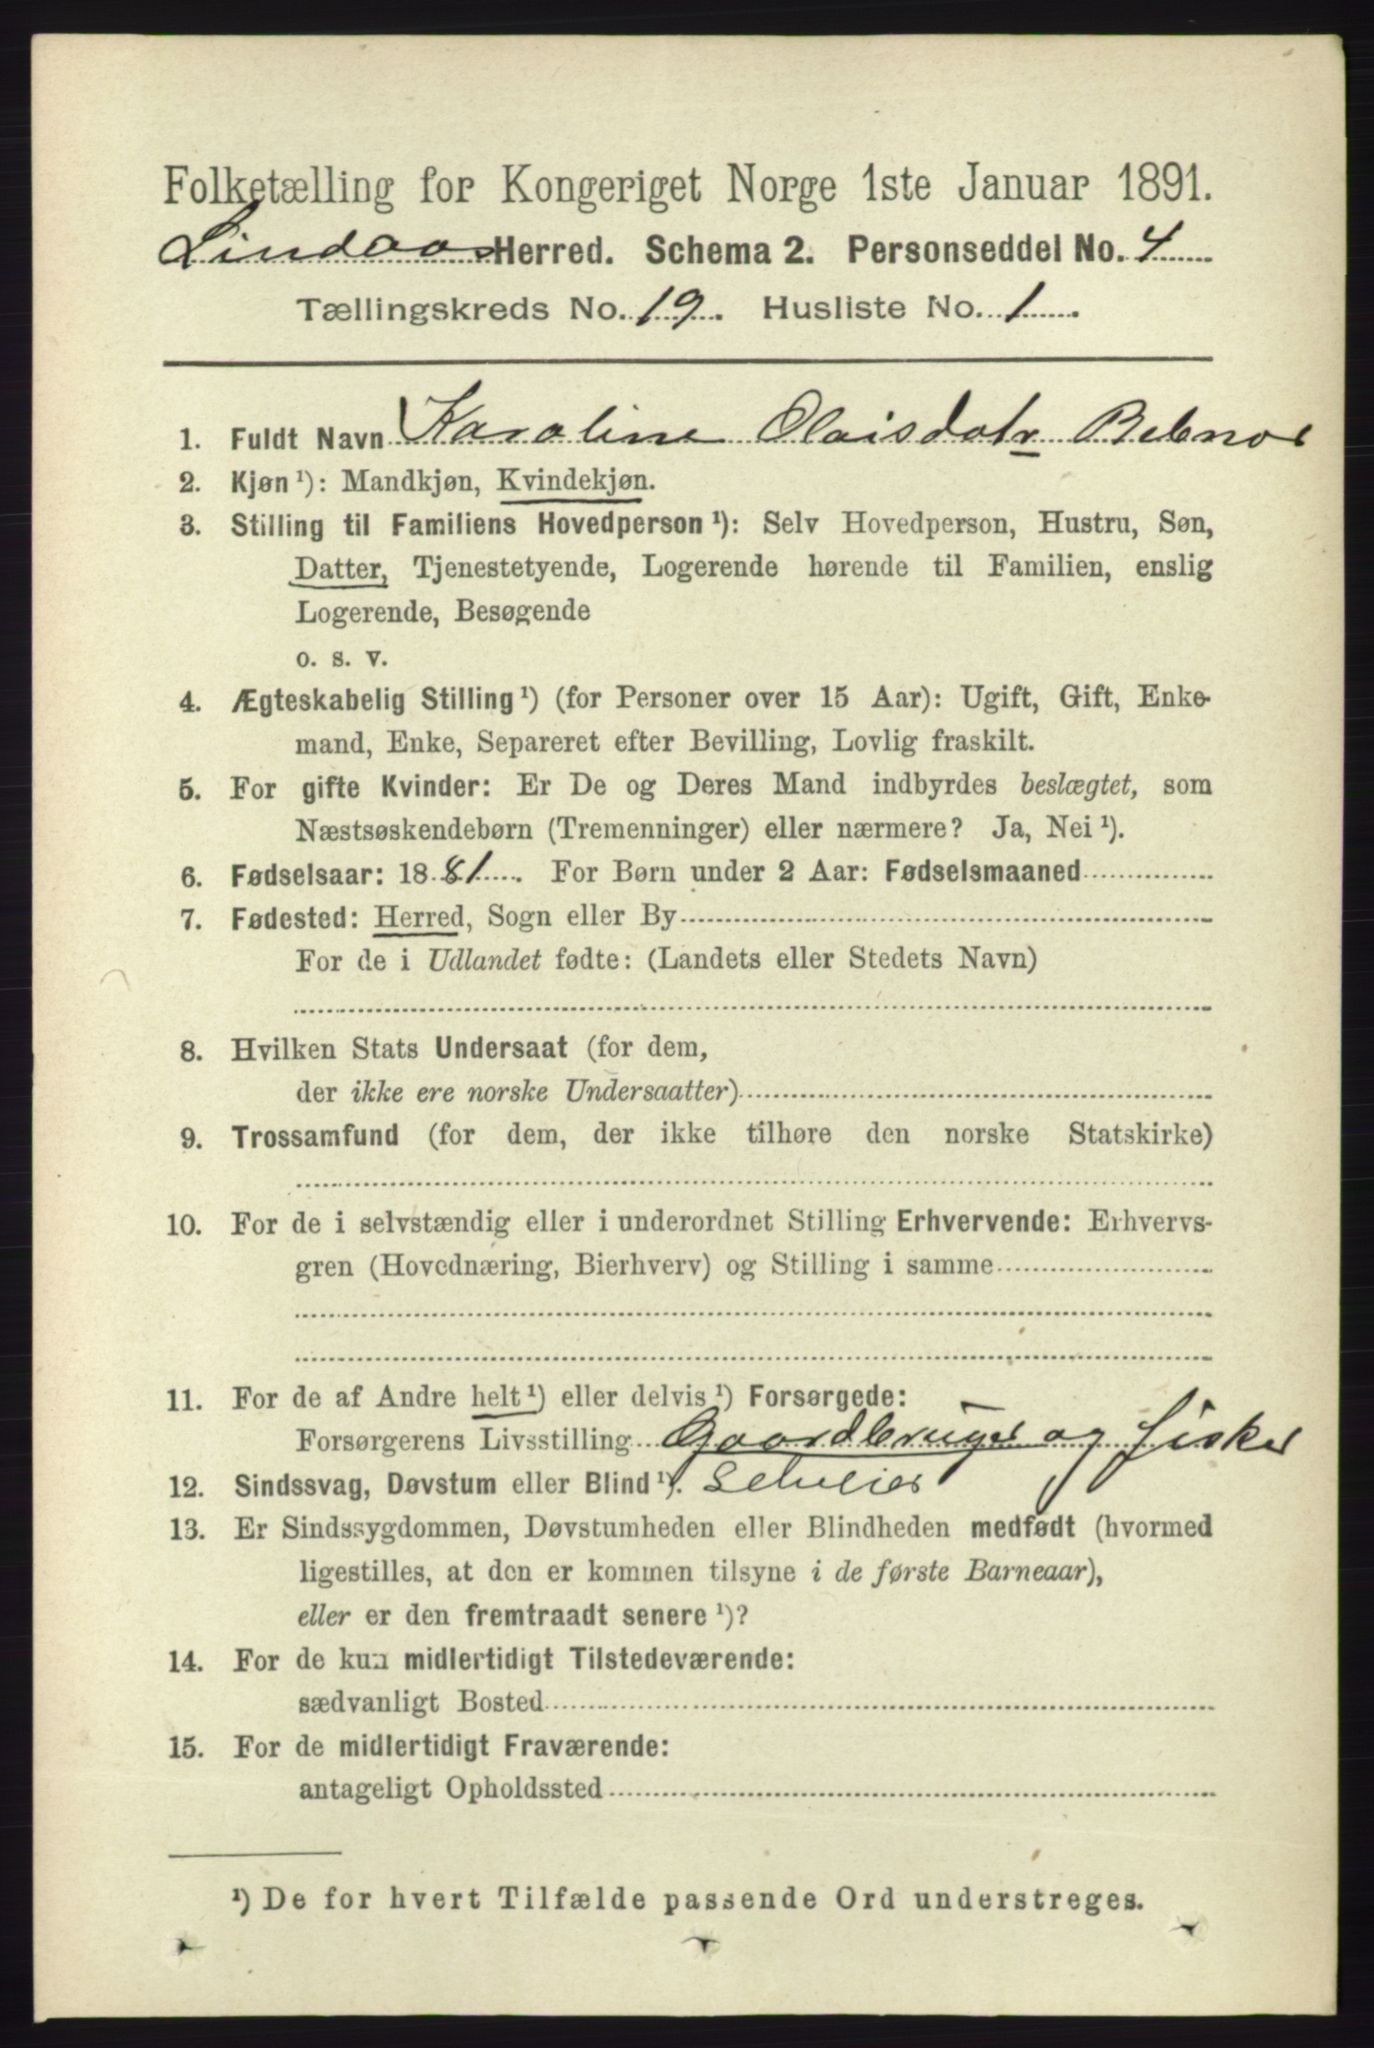 Folketælling for Kongeriget Norge 1ste Januar 1891.
Lindaas Herred. Schema 2. Personseddel No. 4
Tællingskreds No. 19. Husliste No. 1
1. Fuldt Navn Karoline Olaisdatr
2. Kjøn ¹): Mandkjøn, Kvindekjøn.
3. Stilling til Familiens Hovedperson ¹): Selv Hovedperson, Hustru, Søn,
Datter, Tjenestetyende, Logerende hørende til Familien, enslig
Logerende, Besøgende
o. s. v.
4. Ægteskabelig Stilling ¹) (for Personer over 15 Aar): Ugift, Gift, Enke-
mand, Enke, Separeret efter Bevilling, Lovlig fraskilt.
5. For gifte Kvinder: Er De og Deres Mand indbyrdes beslægtet, som
Næstsøskendebørn (Tremenninger) eller nærmere? Ja, Nei ¹).
6. Fødselsaar: 1881. For Børn under 2 Aar: Fødselsmaaned
7. Fødested: Herred, Sogn eller By
For de i Udlandet fødte: (Landets eller Stedets Navn)
8. Hvilken Stats Undersaat (for dem,
der ikke ere norske Undersaatter)
9. Trossamfund (for dem, der ikke tilhøre den norske Statskirke)
10. For de i selvstændig eller i underordnet Stilling Erhvervende: Erhvervs-
gren (Hovednæring, Bierhverv) og Stilling i samme
11. For de af Andre helt ¹) eller delvis ¹) Forsørgede:
Forsørgerens Livsstilling Gaardbruger og fisker
12. Sindssvag, Døvstum eller Blind ¹). Selveier
13. Er Sindssygdommen, Døvstumheden eller Blindheden medfødt (hvormed
ligestilles, at den er kommen tilsyne i de første Barneaar),
eller er den fremtraadt senere ¹)?
14. For de kun midlertidigt Tilstedeværende:
sædvanligt Bosted
15. For de midlertidigt Fraværende:
antageligt Opholdssted
¹) De for hvert Tilfælde passende Ord understreges.